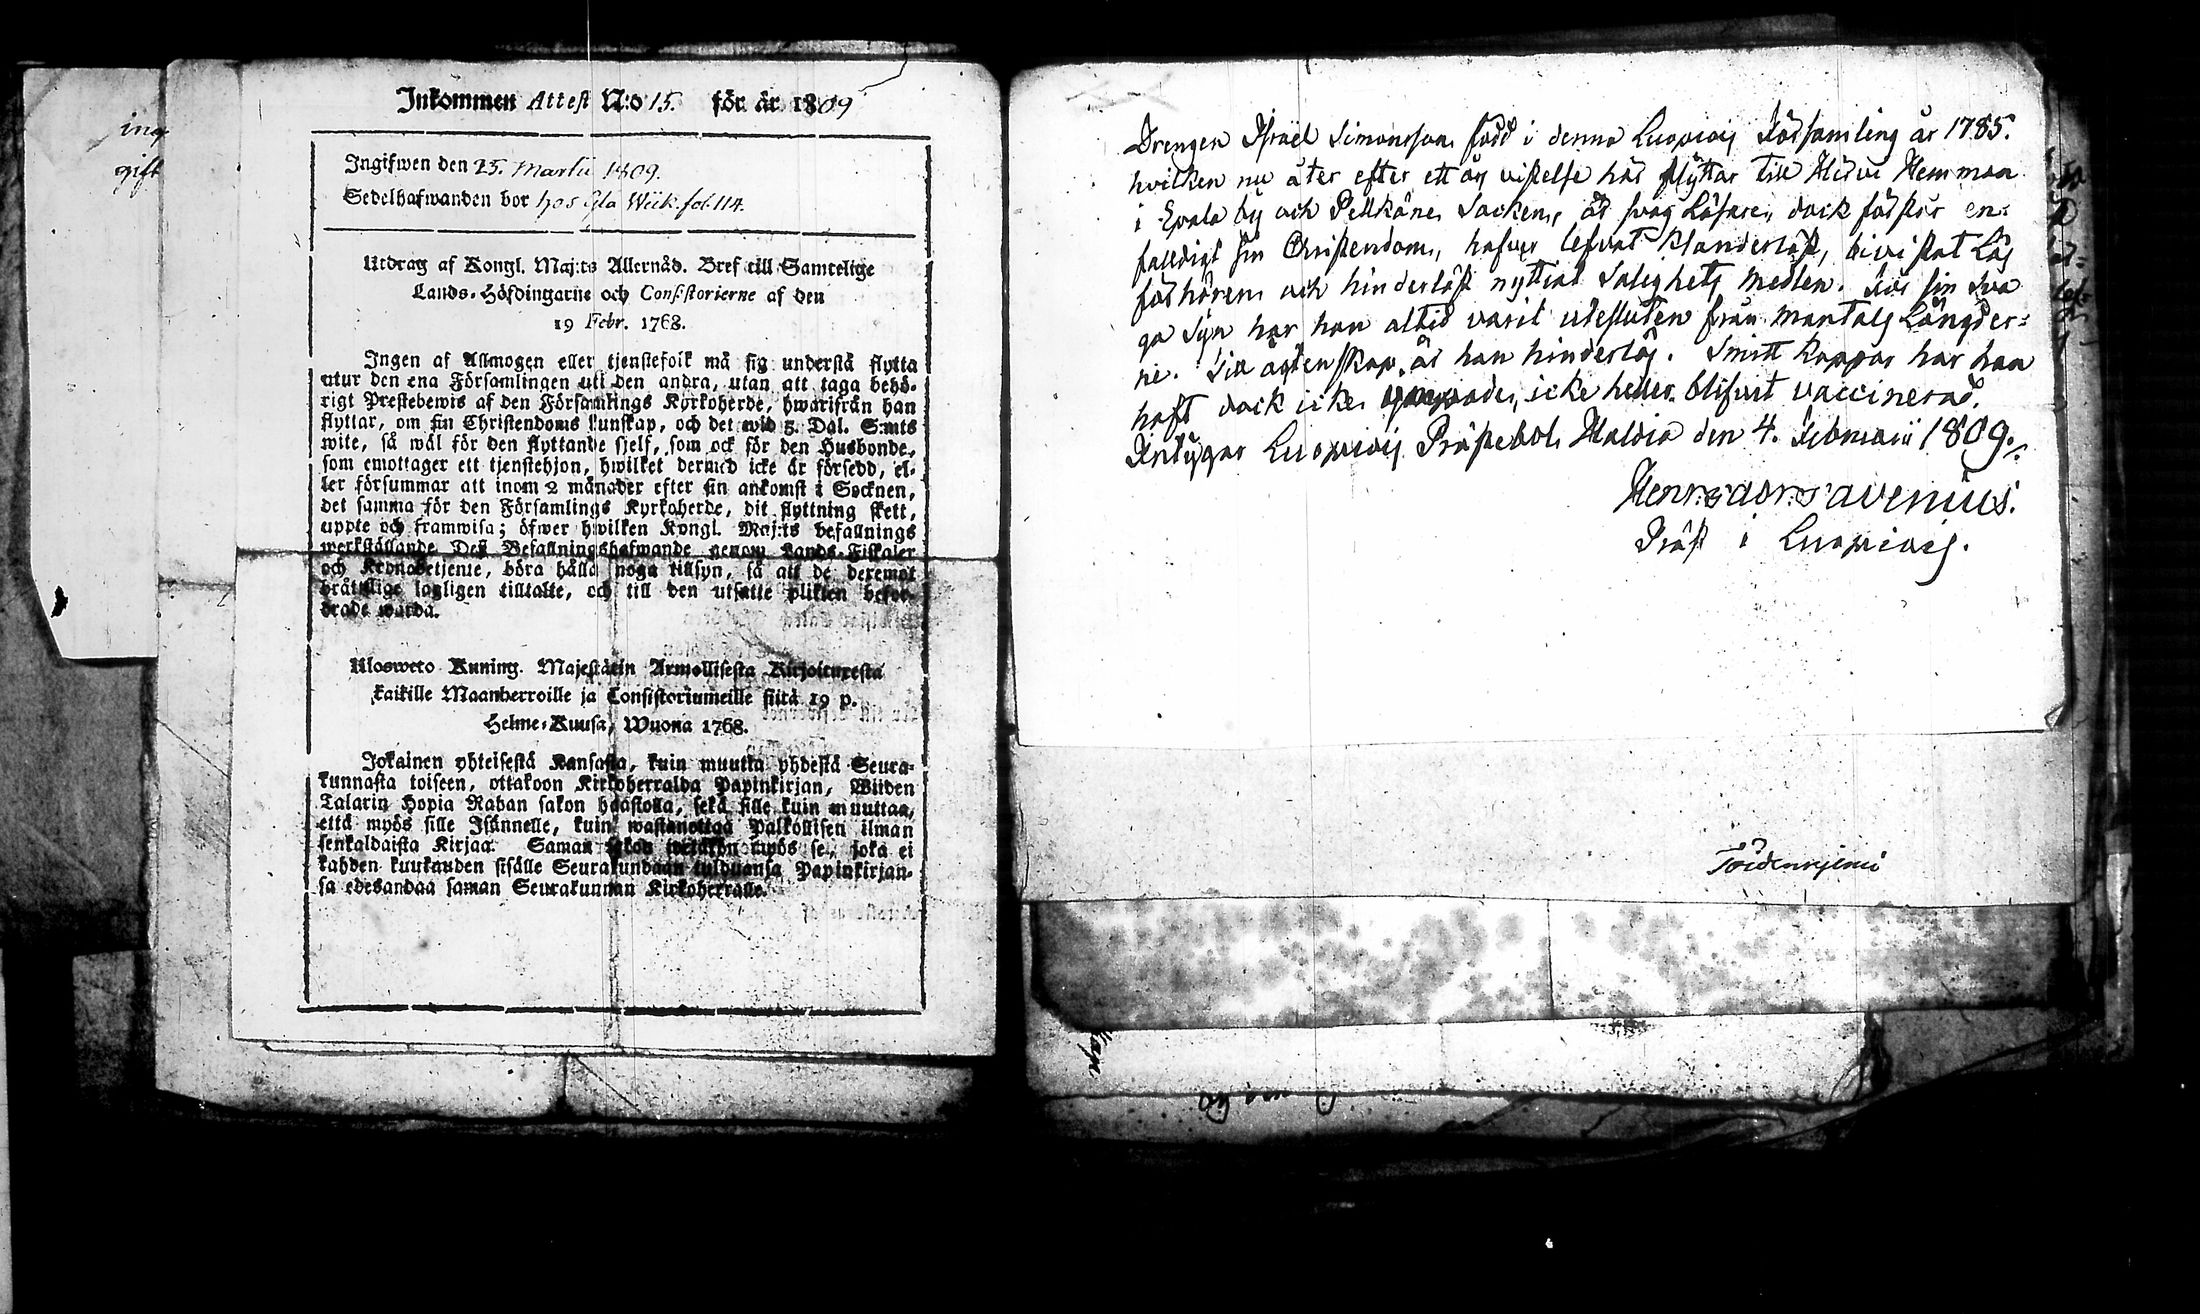 ing
gift
Inkommen Attest N:o 15. för år 1809
Ingifwen den 25. Martii 1809.
Sedelhafwanden bor hos Gla Wiik. fol. 114.
Utdrag af Kongl. Maj:ts Allernåd. Bref till Samtelige
Lands-Höfdingarne och Consistorierne af den
19 Febr. 1768.
Ingen af Allmogen eller tjenstefolk må sig understå flytta
utur den ena Församlingen uti den andra, utan att taga behö-
rigt Prestebewis af den Församlings Kyrkoherde, hwarifrån han
flyttar, om sin Christendoms kunskap, och det wid 5. Dal. S:mts
wite, så wäl för den flyttande sjelf, som ock för den Husbonde,
som emottager ett tjenstehjon, hwilket dermed icke är försedd, el-
ler försummar att inom 2 månader efter sin ankomst i Socknen,
det samma för den Församlings Kyrkoherde, dit flyttning skett,
uppte och framwisa; öfwer hwilken Kongl. Maj:ts befallnings
werkställande Dess Befallningshafwande genom Lands-Fiskaler
och Kronobetjente, böra hålla noga tillsyn, så att de deremot
bråttslige lagligen tilltalte, och till den utsatte plikten befor-
drade warda.
Ulosweto Kuning. Majestätin Armollisesta Kirjoituxesta
kaikille Maanherroille ja Consistoriumeille siitä 19 p.
Helme-Kuusa, Wuona 1768.
Jokainen yhteisestä Kansasta, kuin muutta yhdestä Seura-
kunnasta toiseen, ottakoon Kirkoherralda Papinkirjan, Wiiden
Talarin Hopia Rahan sakon haastolla, sekä sille kuin muuttaa,
että myös sille Isännelle, kuin wastanottaa Palkollisen ilman
senkaldaista Kirjaa. Saman sakon wetäkön myös se, joka ei
kahden kuukauden sisälle Seurakundaan tulduansa Papinkirjan-
sa edesandaa saman Seurakunnan Kirkoherralle.
Drengen Israel Simonsson född i denna Luopiois Församling år 1785.
hvilken nu åter efter ett års vistelse här flyttar till Hirvi Hemman
i Epala by och Pelkäne Socken, är svag Läsare, dock förstår en-
faldigt sin Christendom, hafver lefvat klanderlöst, bivistat Läs
förhören och hinderlöst nyttjat Salighets medlen. För sin sva
ga Syn har han altid varit utesluten från Mantals Längder-
ne. Till ägtenskap är han hinderlös. Smitt Koppor har han
haft dock icke ympade, icke heller blifvit vaccinerad.
Intygar Luopiois Prästebol Haltia den 4. Februarii 1809.
Henr: Avenius.
Präst i Luopiois.